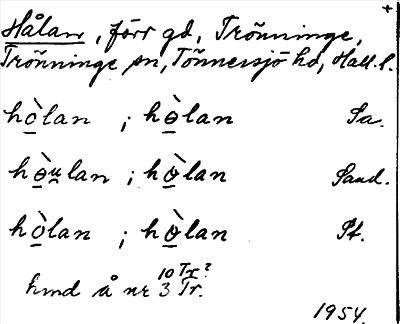 +
Hålan, förr gd, Trönninge,
Trönninge sn, Tönnersjö hd, Hall. l.
hò̲lan ; hɵ̲̀lan Sa.
hɵ̲̀u̲lan ; hɵ̲̀lan Sand.
hò̲lan ; hɵ̲̀lan Pt.
10 Tr?
hmd å nr 3 Tr.
1954.